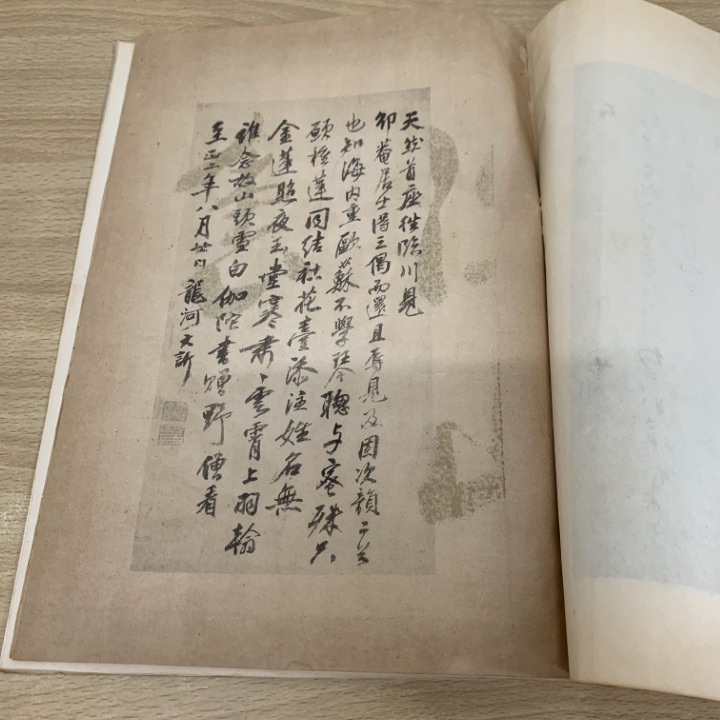 天然首座往臨川見
邵菴居士得三偈而還且辱見及因次韻二首
也知海内重歐蘇不學琴聰与蜜殊只
願蓮同結社花臺添注姓名無
金蓮照夜玉堂寒肅〻雲霄上羽翰
誰念山頭雪白伽陀書贈野僧看
至正二年八月廿日龍河大訢